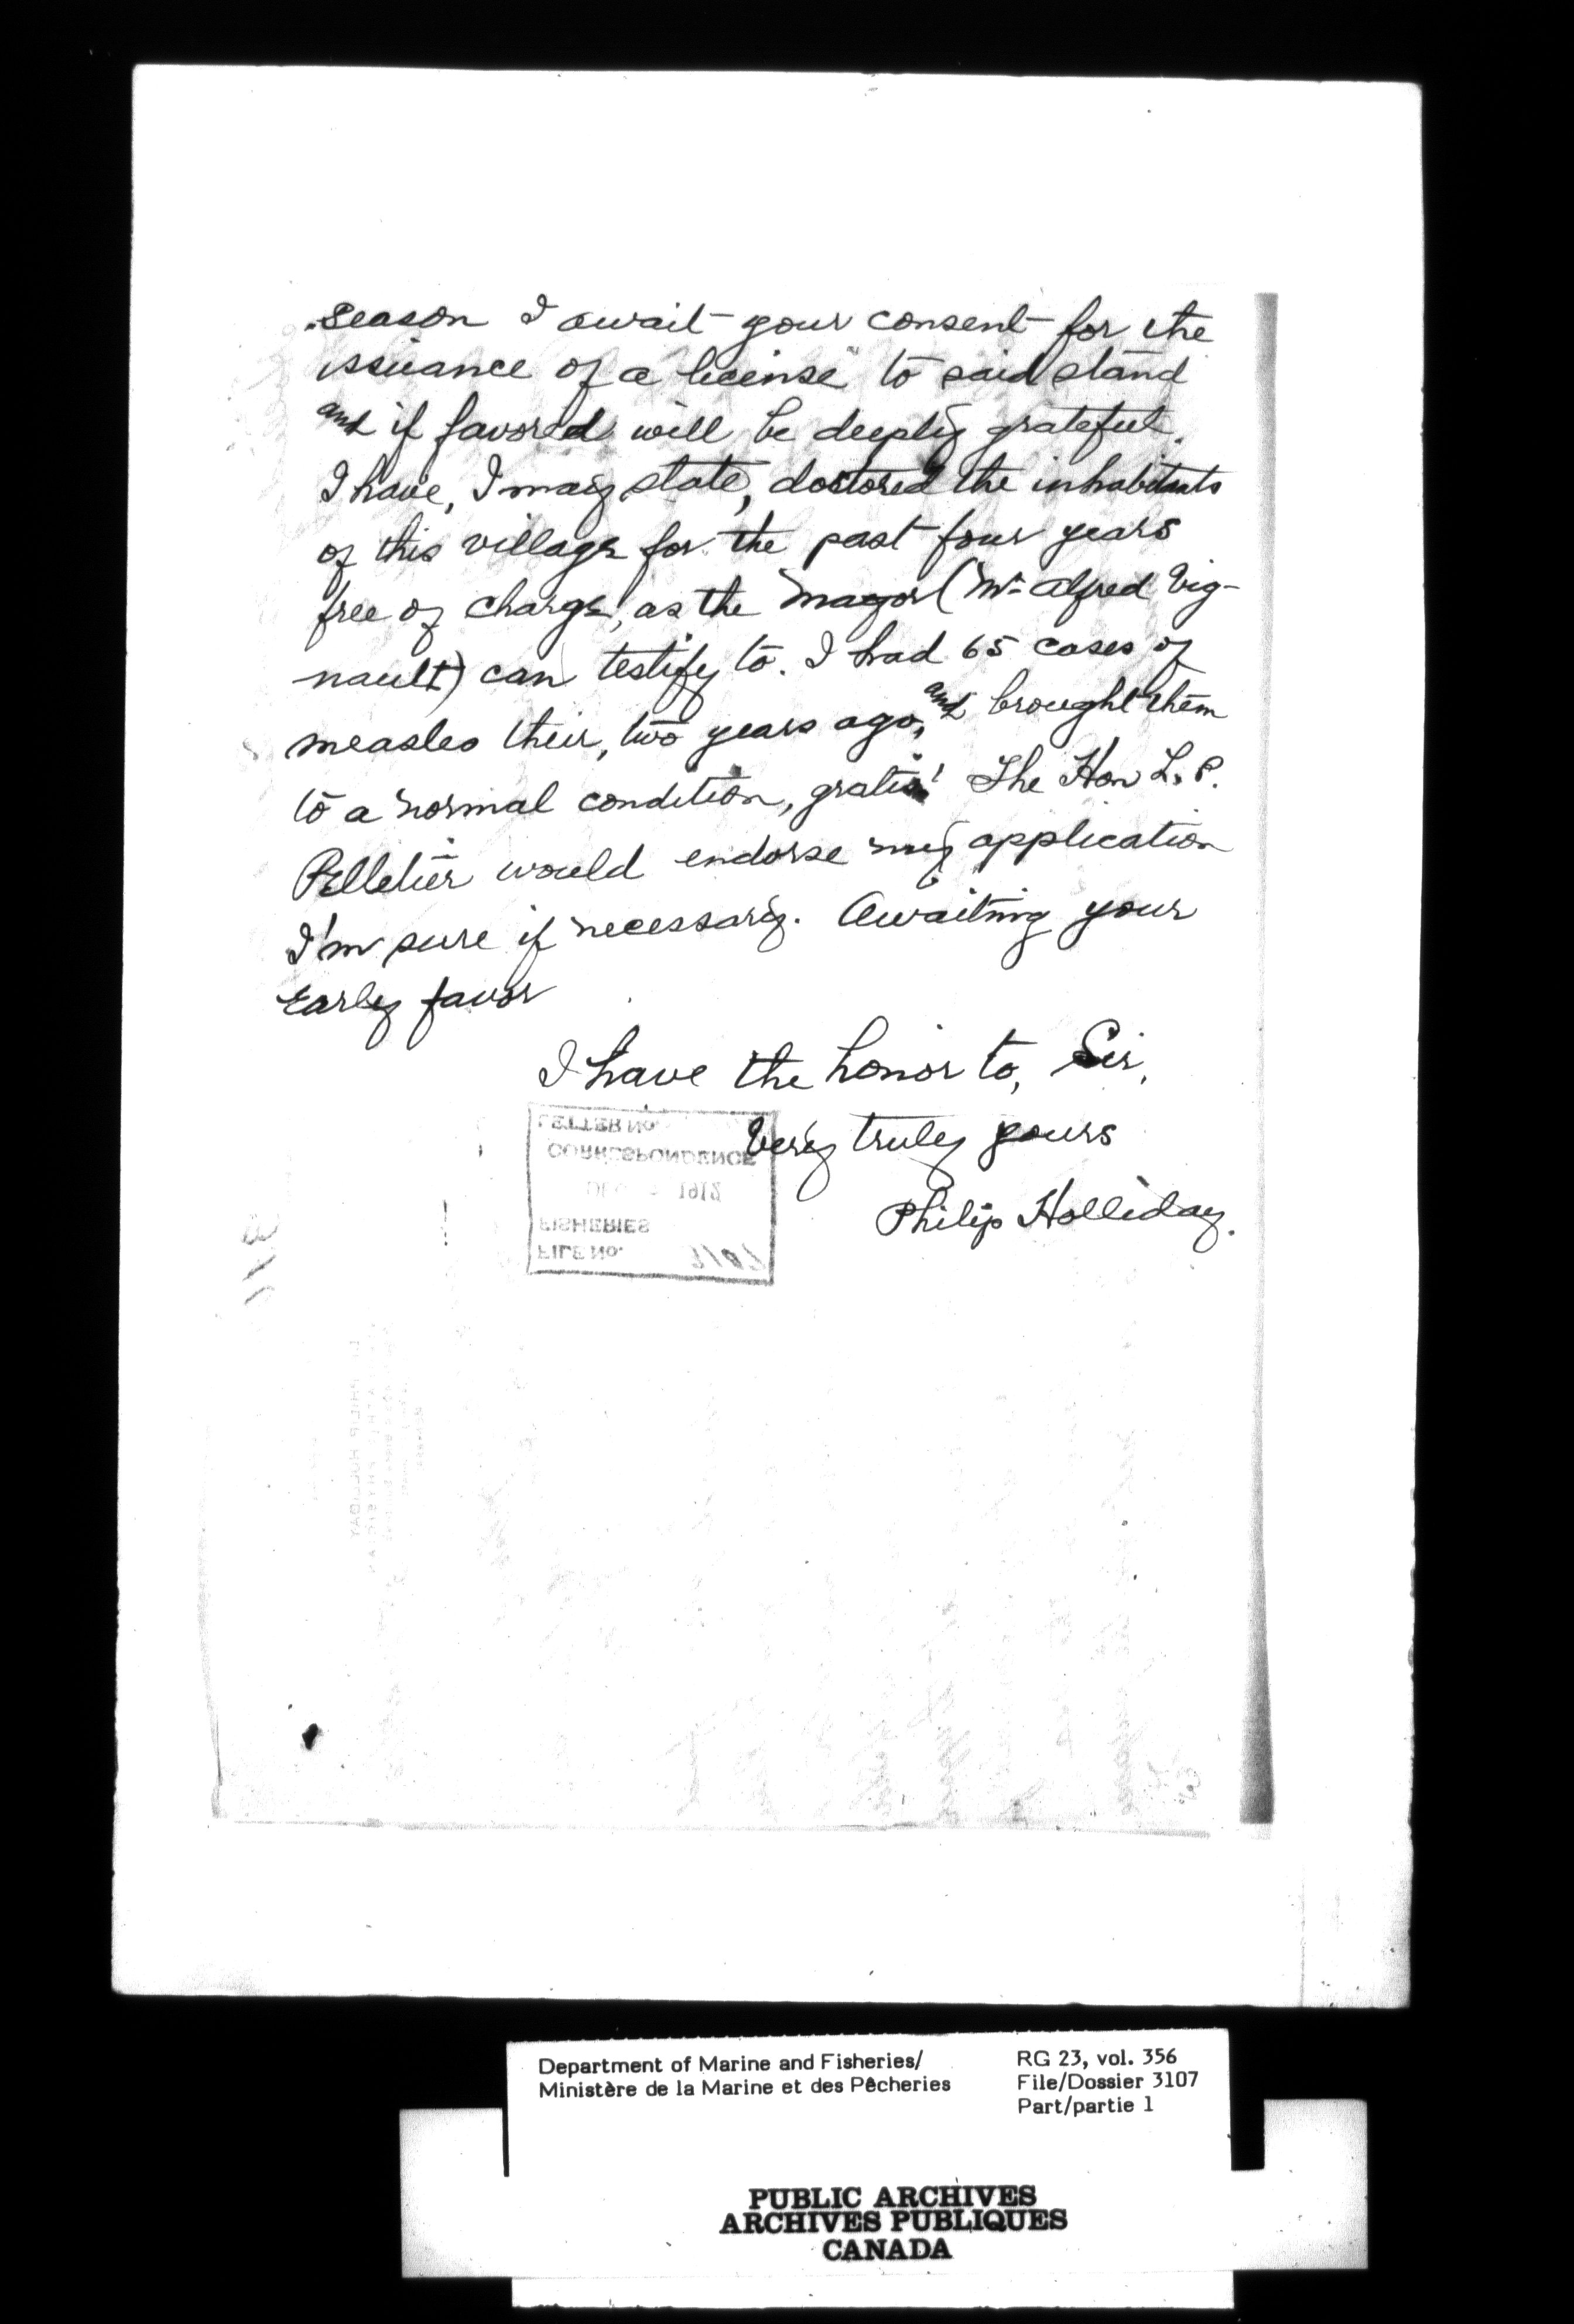 season I await your consent for the
issuance of a license to said stand
and if favored will be deeply grateful.
I have, I may state, doctored the inhabitants
of this village for the past four years
free of charge, as the Mayor (Mr Alfred Vig-
nault) can testify to. I had 65 cases of
measles their, two years ago, and brought them
to a normal condition, gratis! The Hon L. P.
Pelletier would endorse my application
I'm sure if necessary. Awaiting your
Early favor
I have the honor to, Sir,
Very truly yours
Philip Holliday.
LETTER No.
CORRESPONDENCE
1912
FISHERIES
FILE No.
Department of Marine and Fisheries/
Ministère de la Marine et des Pêcheries
RG 23, vol. 356
File/Dossier 3107
Part/partie 1
PUBLIC ARCHIVES
ARCHIVES PUBLIQUES
CANADA